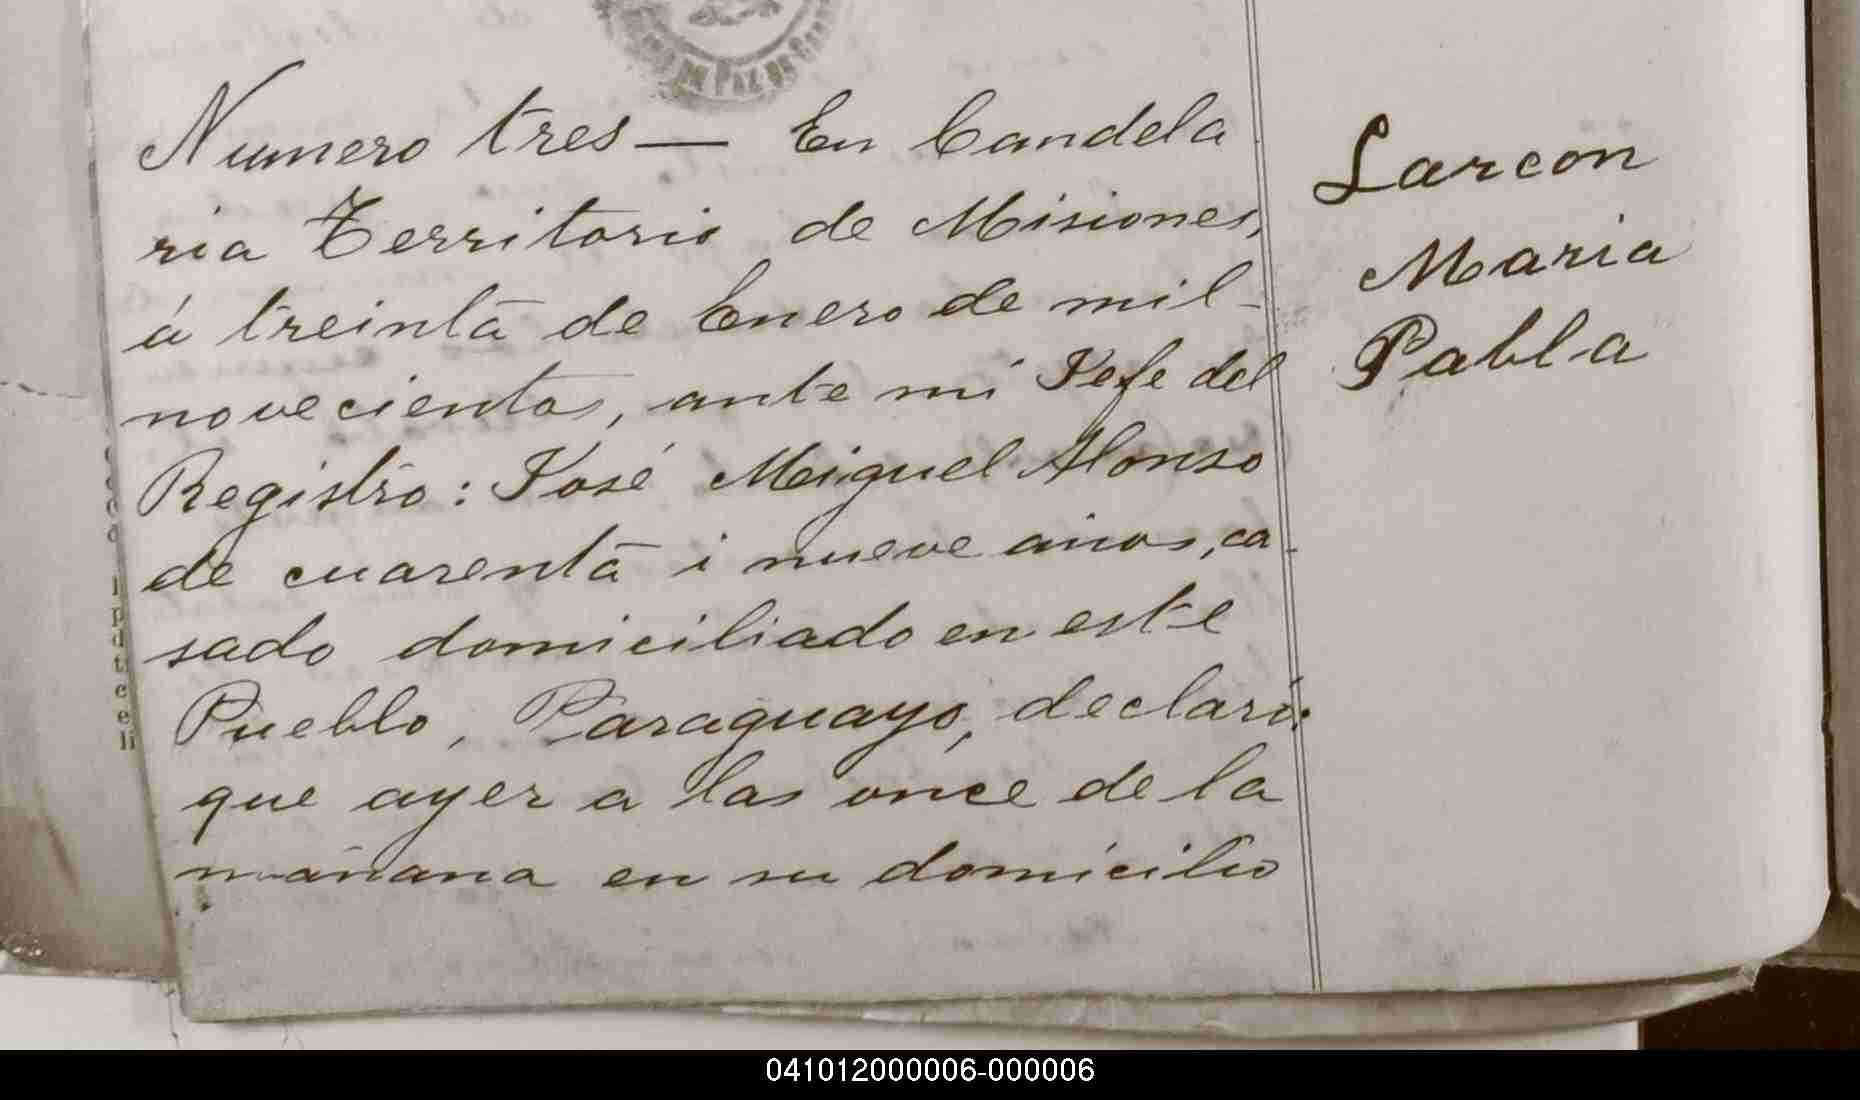 DE PAZ DE
Numero tres — En Candela
ria Territorio de Misiones,
á treinta de Enero de mil
novecientos, ante mi Jefe del
Registro: José Miguel Alonso
de cuarenta i nueve años, ca-
sado domiciliado en este
Pueblo, Paraguayo, declaró:
que ayer a las once de la
mañana en su domicilio
Larcon
Maria
Pabla
l
p
d
ti
c
e
li
041012000006-000006